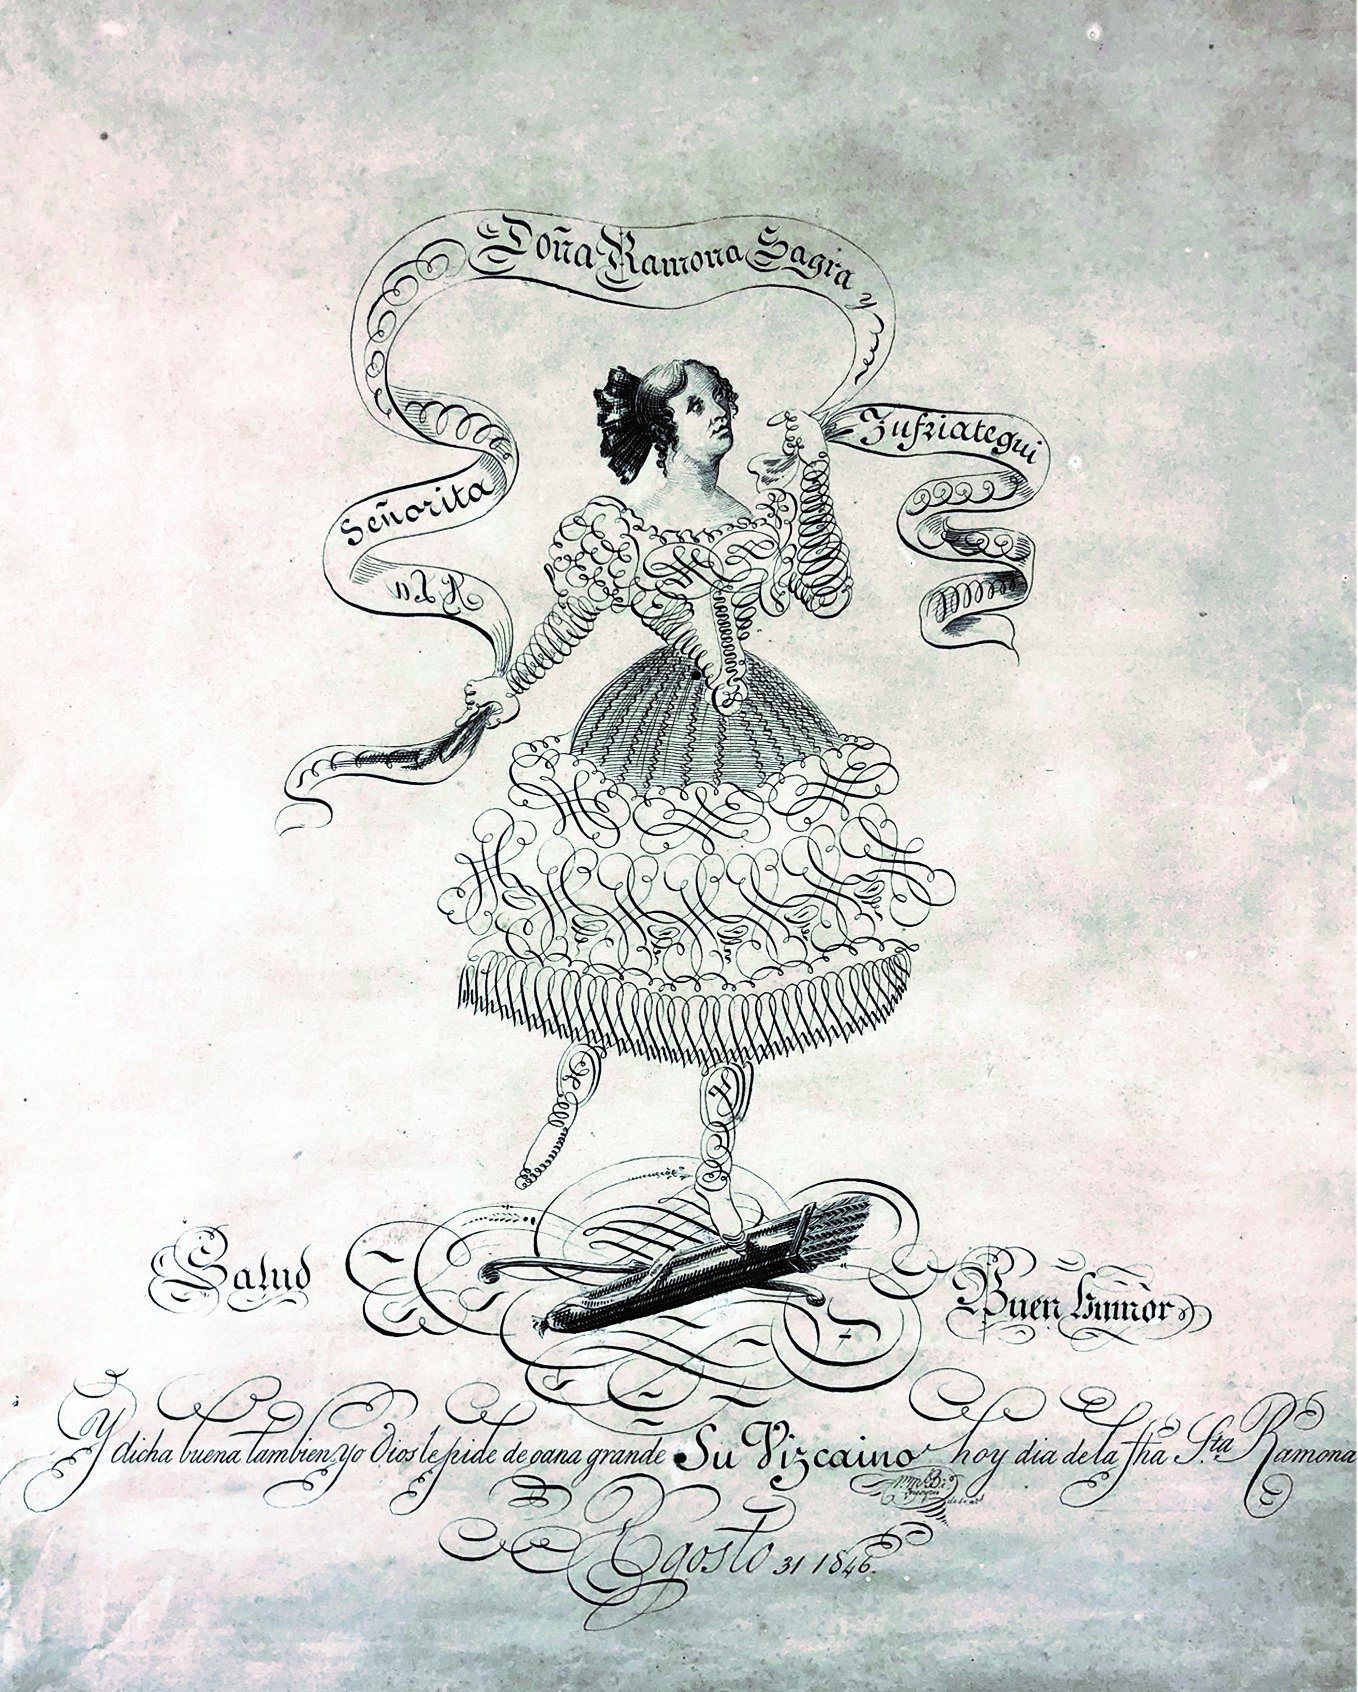 Señorita
Doña Ramona Sagra y
Zufriategui
Salud
Buen humòr
Y dicha buena tambien yo Dios le pide de gana grande Su Vizcaino hoy dia de la fha Sta Ramona
Agosto 31 1846.